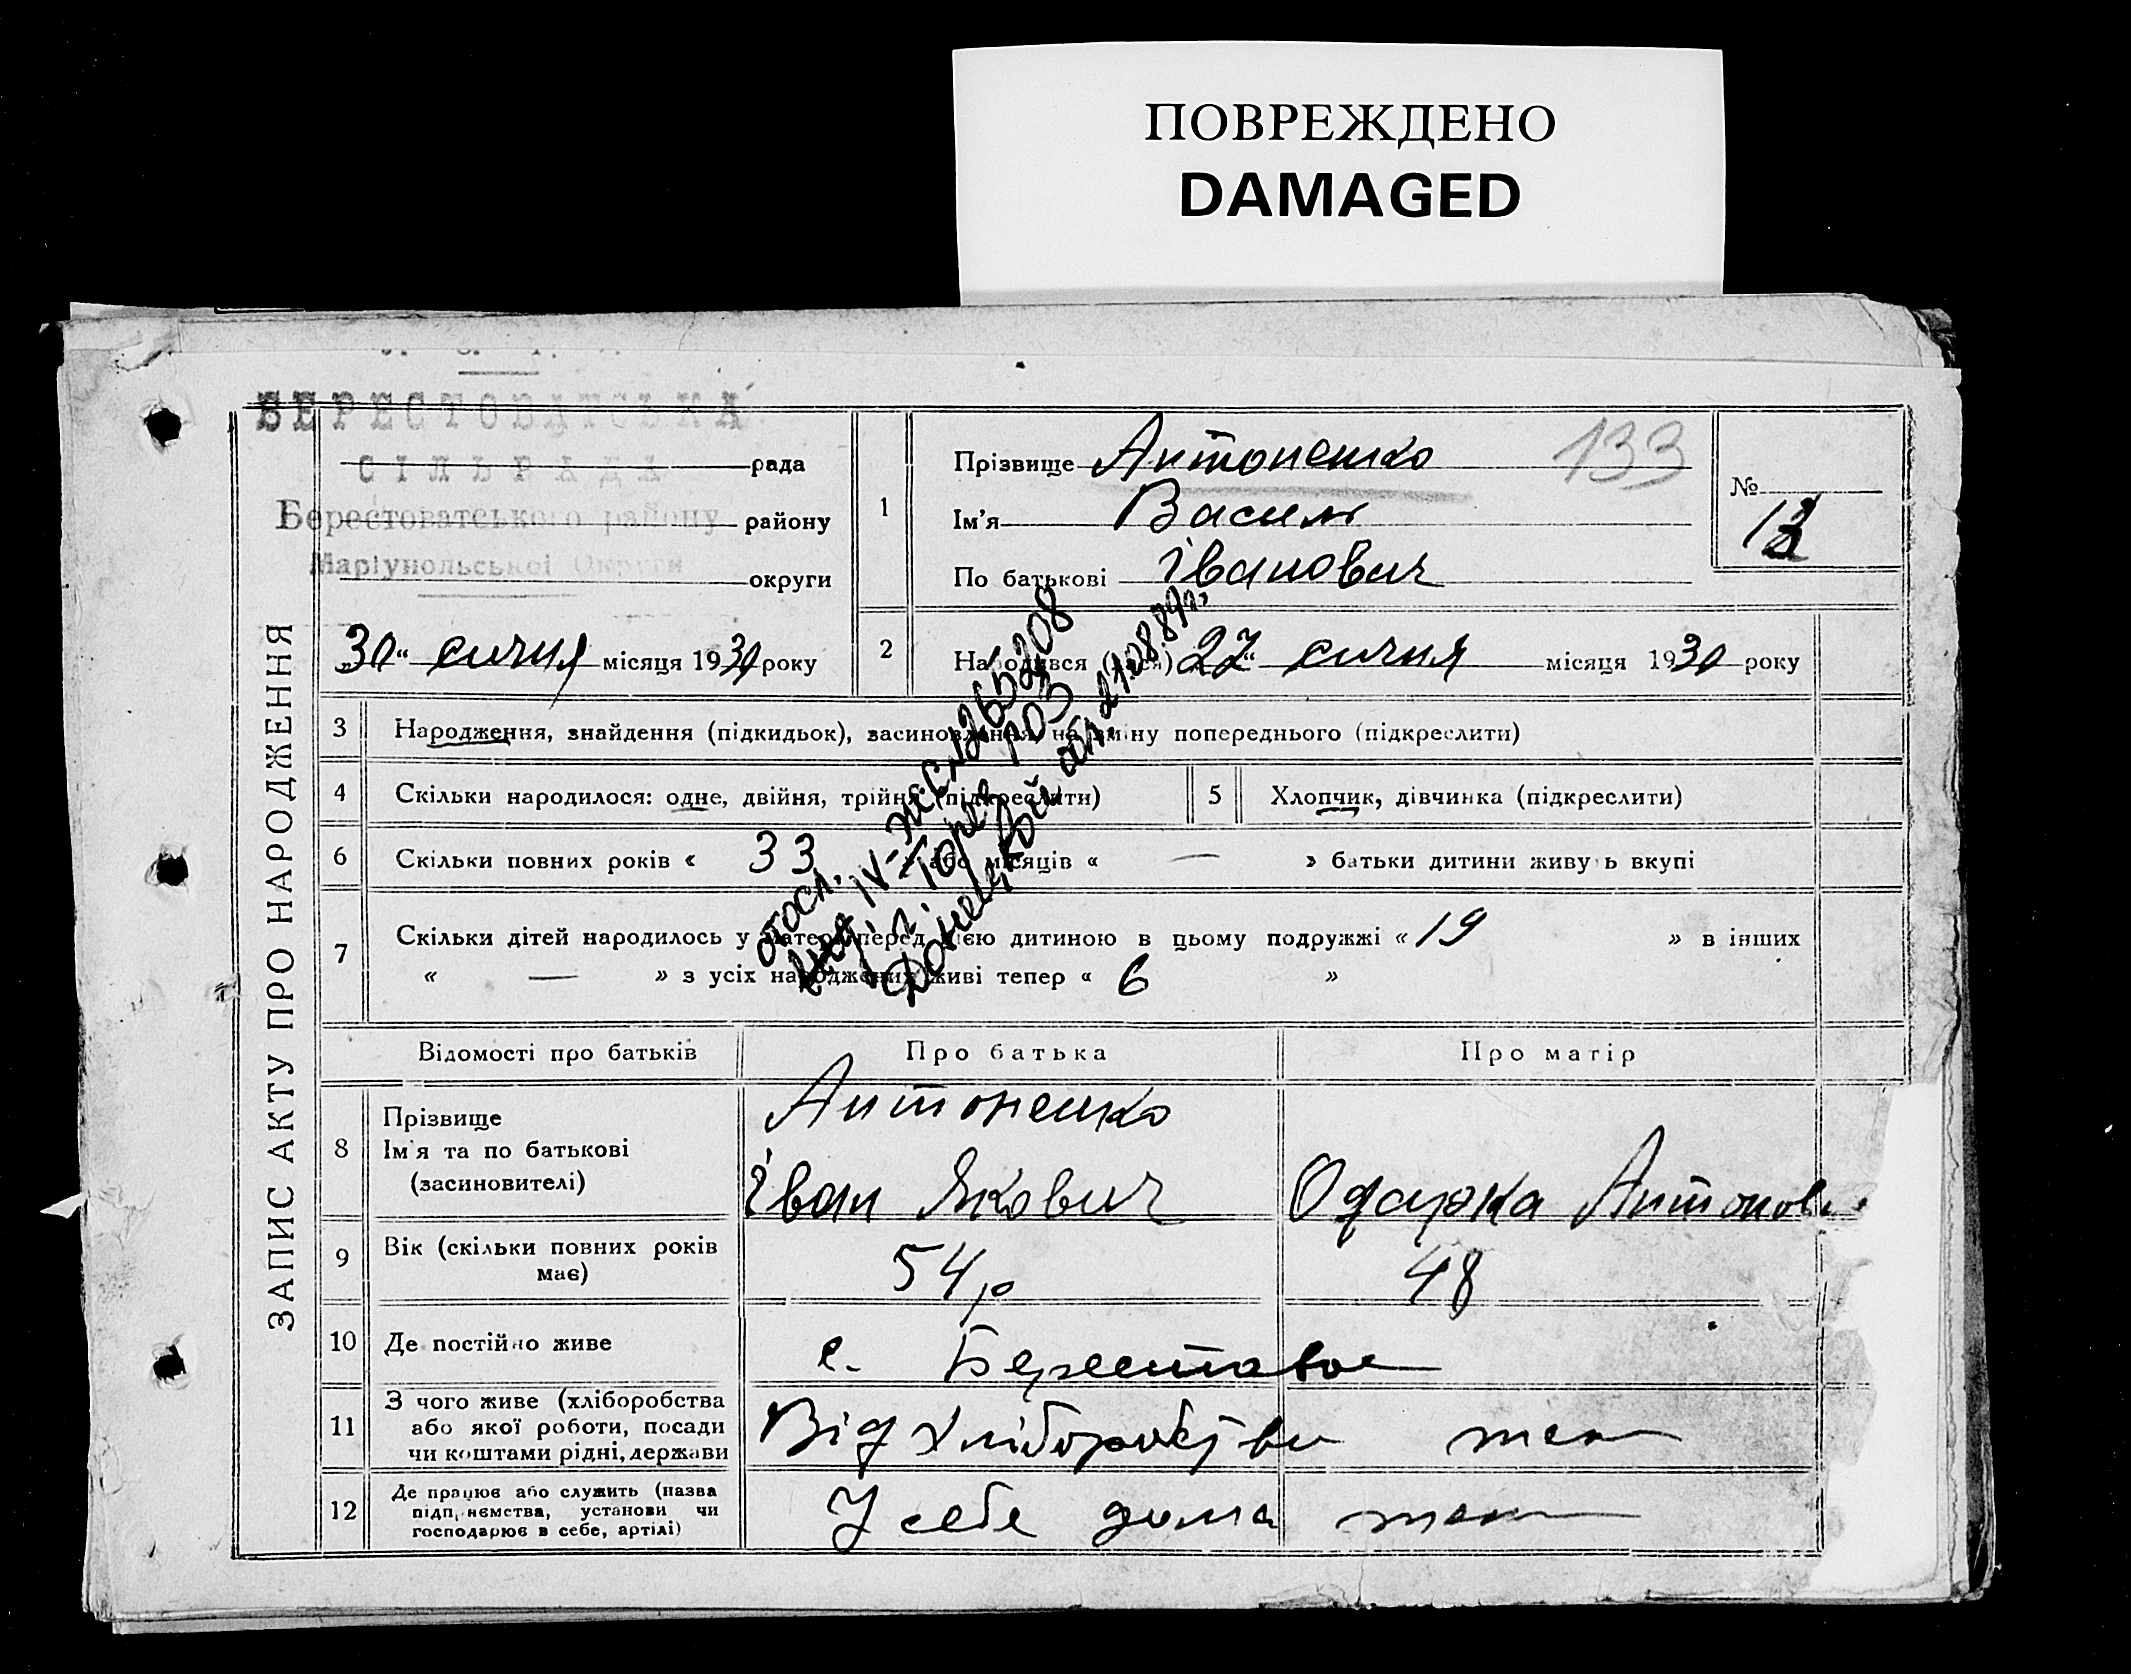 ПОВРЕЖДЕНО
DAMAGED
БЕРЕСТОВАТСЬКА
СІЛЬРАДА рада
Берестоватського району району
Маріупольської Округи округи
30 “ сичня місяця 1930 року
ЗАПИС АКТУ ПРО НАРОДЖЕННЯ
1 Прізвище Антоненко 133
Ім'я Василь
По батькові Іванович
№
13
2 Народився (лася) 27 “ сичня місяця 1930 року
3 Народження, знайдення (підкидьок), засиновлення, на зміну попереднього (підкреслити)
4 Скільки народилося: одне, двійня, трійня (підкреслити) 5 Хлопчик, дівчинка (підкреслити)
6 Скільки повних років « 33 » або місяців « — » батьки дитини живуть вкупі
7 Скільки дітей народилось у матери перед цією дитиною в цьому подружжі « 19 » в інших
« — » з усіх народжених живі тепер « 6 »
IV-ЖС №265208
г. Торез 703
Донецкой обл. 21.08.89г.
Відомості про батьків Про батька Про матір
8 Прізвище Антоненко
Ім'я та по батькові
(засиновителі) Іван Якович Одарка
9 Вік (скільки повних років 54 р 48
має)
10 Де постійно живе с. Берестовое
11 З чого живе (хліборобства
або якої роботи, посади Від хліборобства
чи коштами рідні, держави
12 Де працює або служить (назва
підприємства, установи чи У себе дома
господарює в себе, артілі)